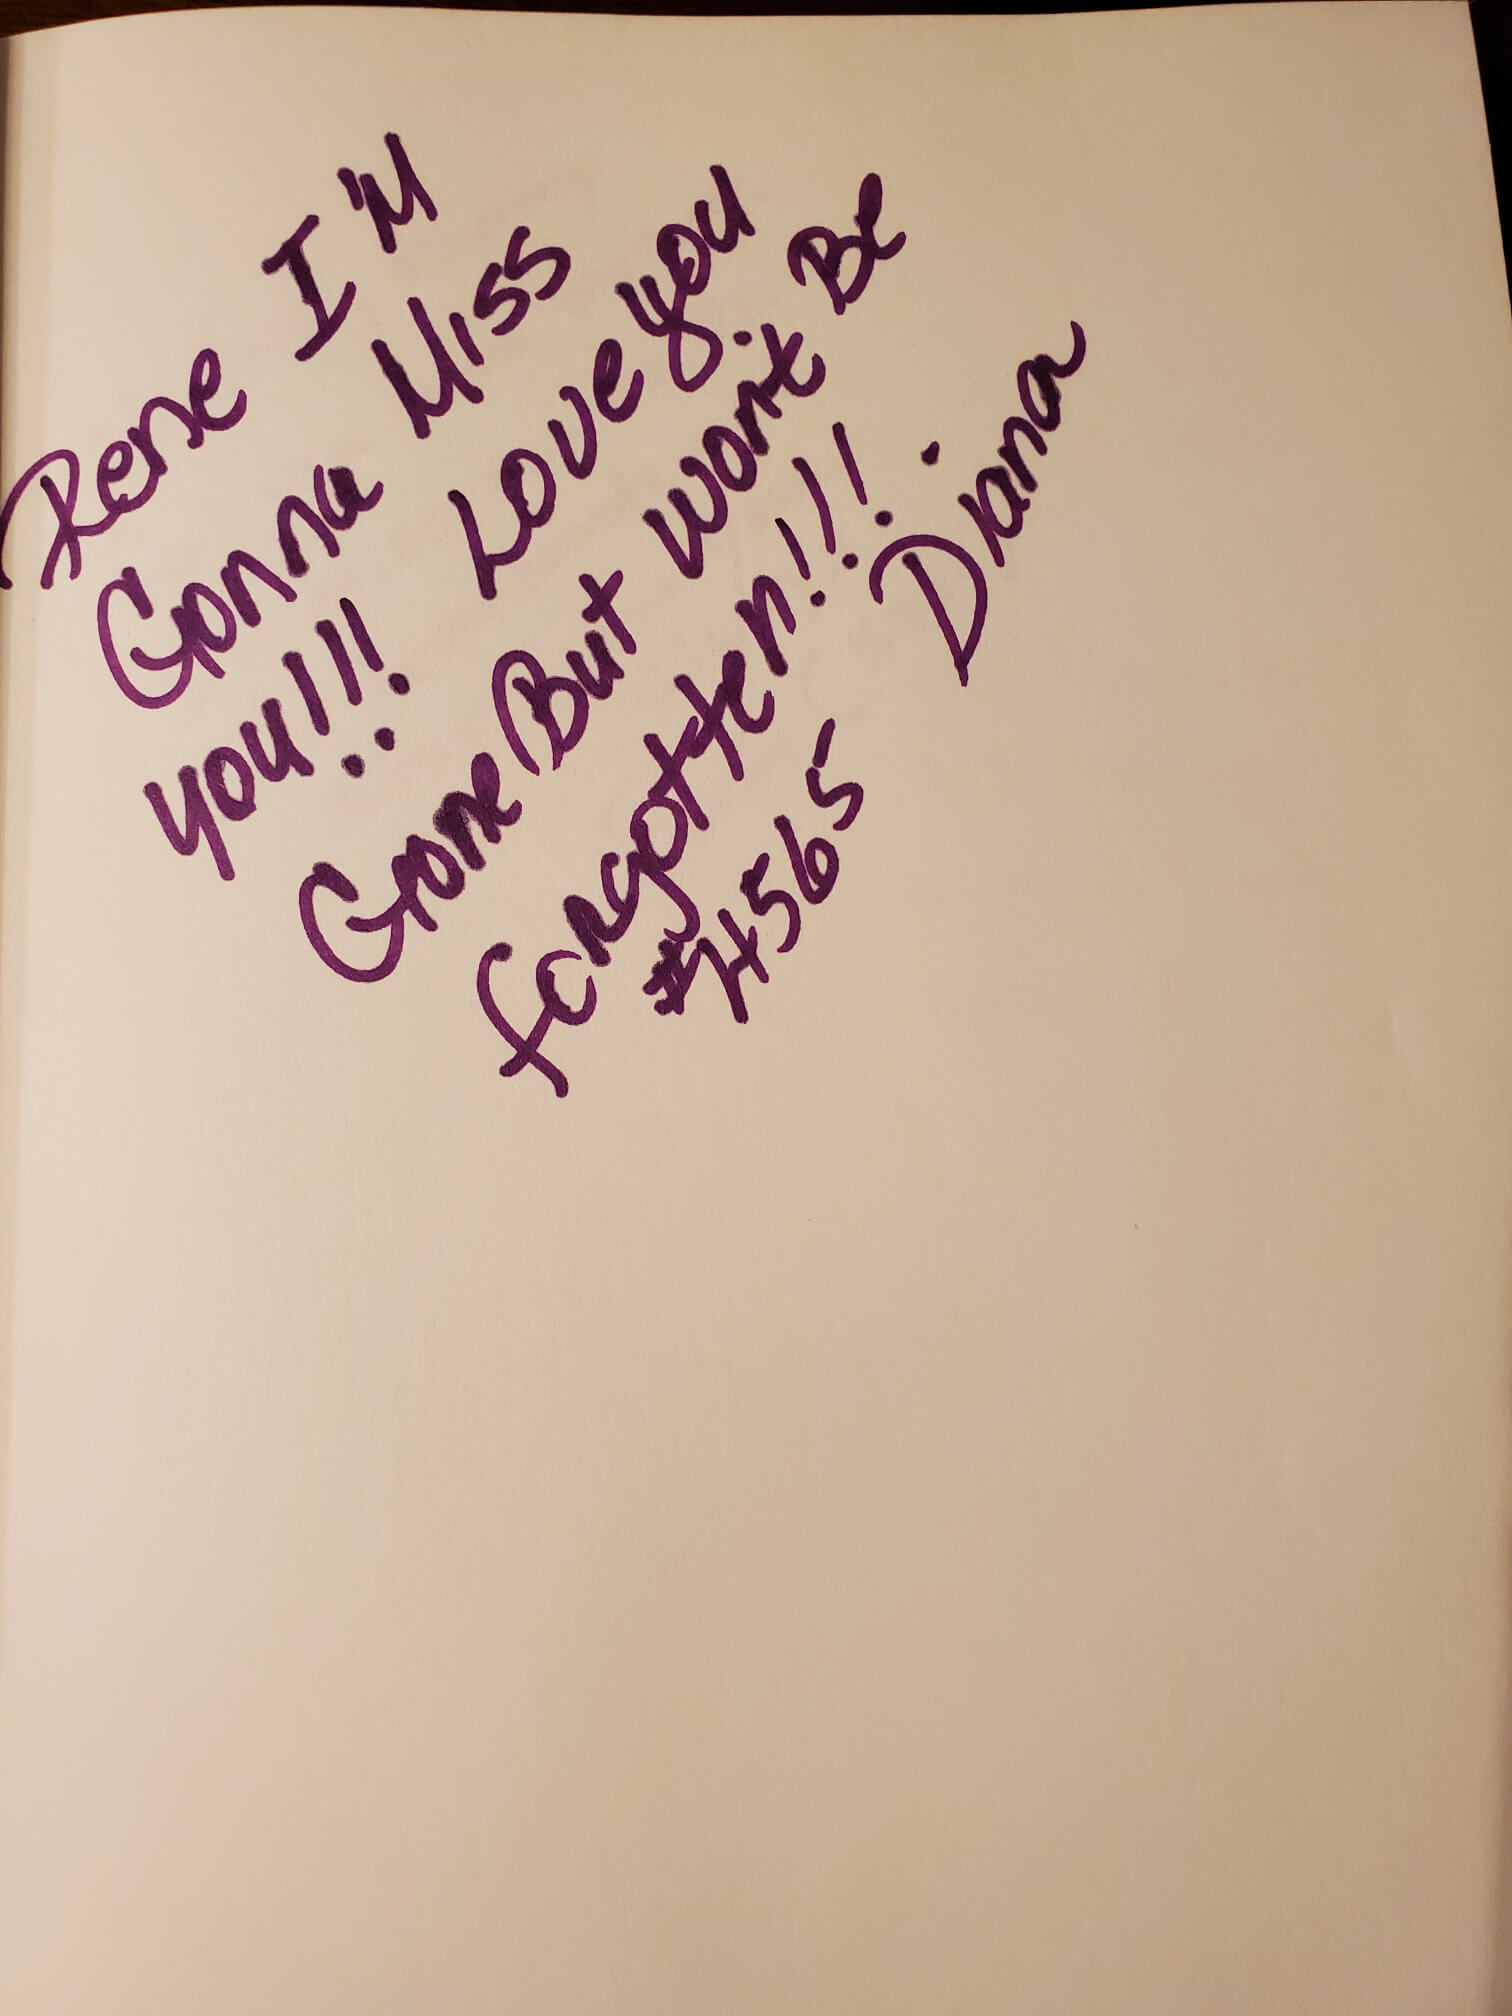 Rene I'M
Gonna Miss
you!!! Love you
Gone But won't Be
forgotten!!!
#4565 Diana